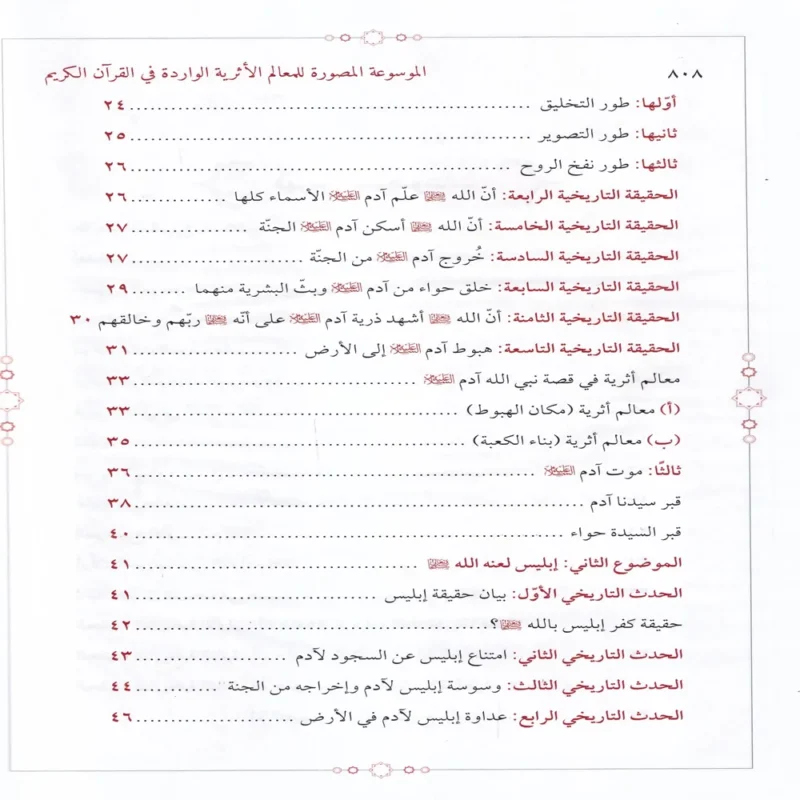 ٨٠٨ الموسوعة المصورة للمعالم الأثرية الواردة في القرآن الكريم
أوّلها: طور التخليق ٢٤
ثانيها: طور التصوير ٢٥
ثالثها: طور نفخ الروح ٢٦
الحقيقة التاريخية الرابعة: أنّ الله علّم آدم الأسماء كلها ٢٦
الحقيقة التاريخية الخامسة: أنّ الله أسكن آدم الجنّة ٢٧
الحقيقة التاريخية السادسة: خُروج آدم من الجنّة ٢٧
الحقيقة التاريخية السابعة: خلق حواء من آدم وبثّ البشرية منهما ٢٩
الحقيقة التاريخية الثامنة: أنّ الله أشهد ذرية آدم على أنّه ربّهم وخالقهم ٣٠
الحقيقة التاريخية التاسعة: هبوط آدم إلى الأرض ٣١
معالم أثرية في قصة نبي الله آدم ٣٣
(أ) معالم أثرية (مكان الهبوط) ٣٣
(ب) معالم أثرية (بناء الكعبة) ٣٥
ثالثًا: موت آدم ٣٦
قبر سيدنا آدم ٣٨
قبر السيدة حواء ٤٠
الموضوع الثاني: إبليس لعنه الله ٤١
الحدث التاريخي الأوّل: بيان حقيقة إبليس ٤١
حقيقة كفر إبليس بالله ؟ ٤٢
الحدث التاريخي الثاني: امتناع إبليس عن السجود لآدم ٤٣
الحدث التاريخي الثالث: وسوسة إبليس لآدم وإخراجه من الجنة ٤٤
الحدث التاريخي الرابع: عداوة إبليس لآدم في الأرض ٤٦